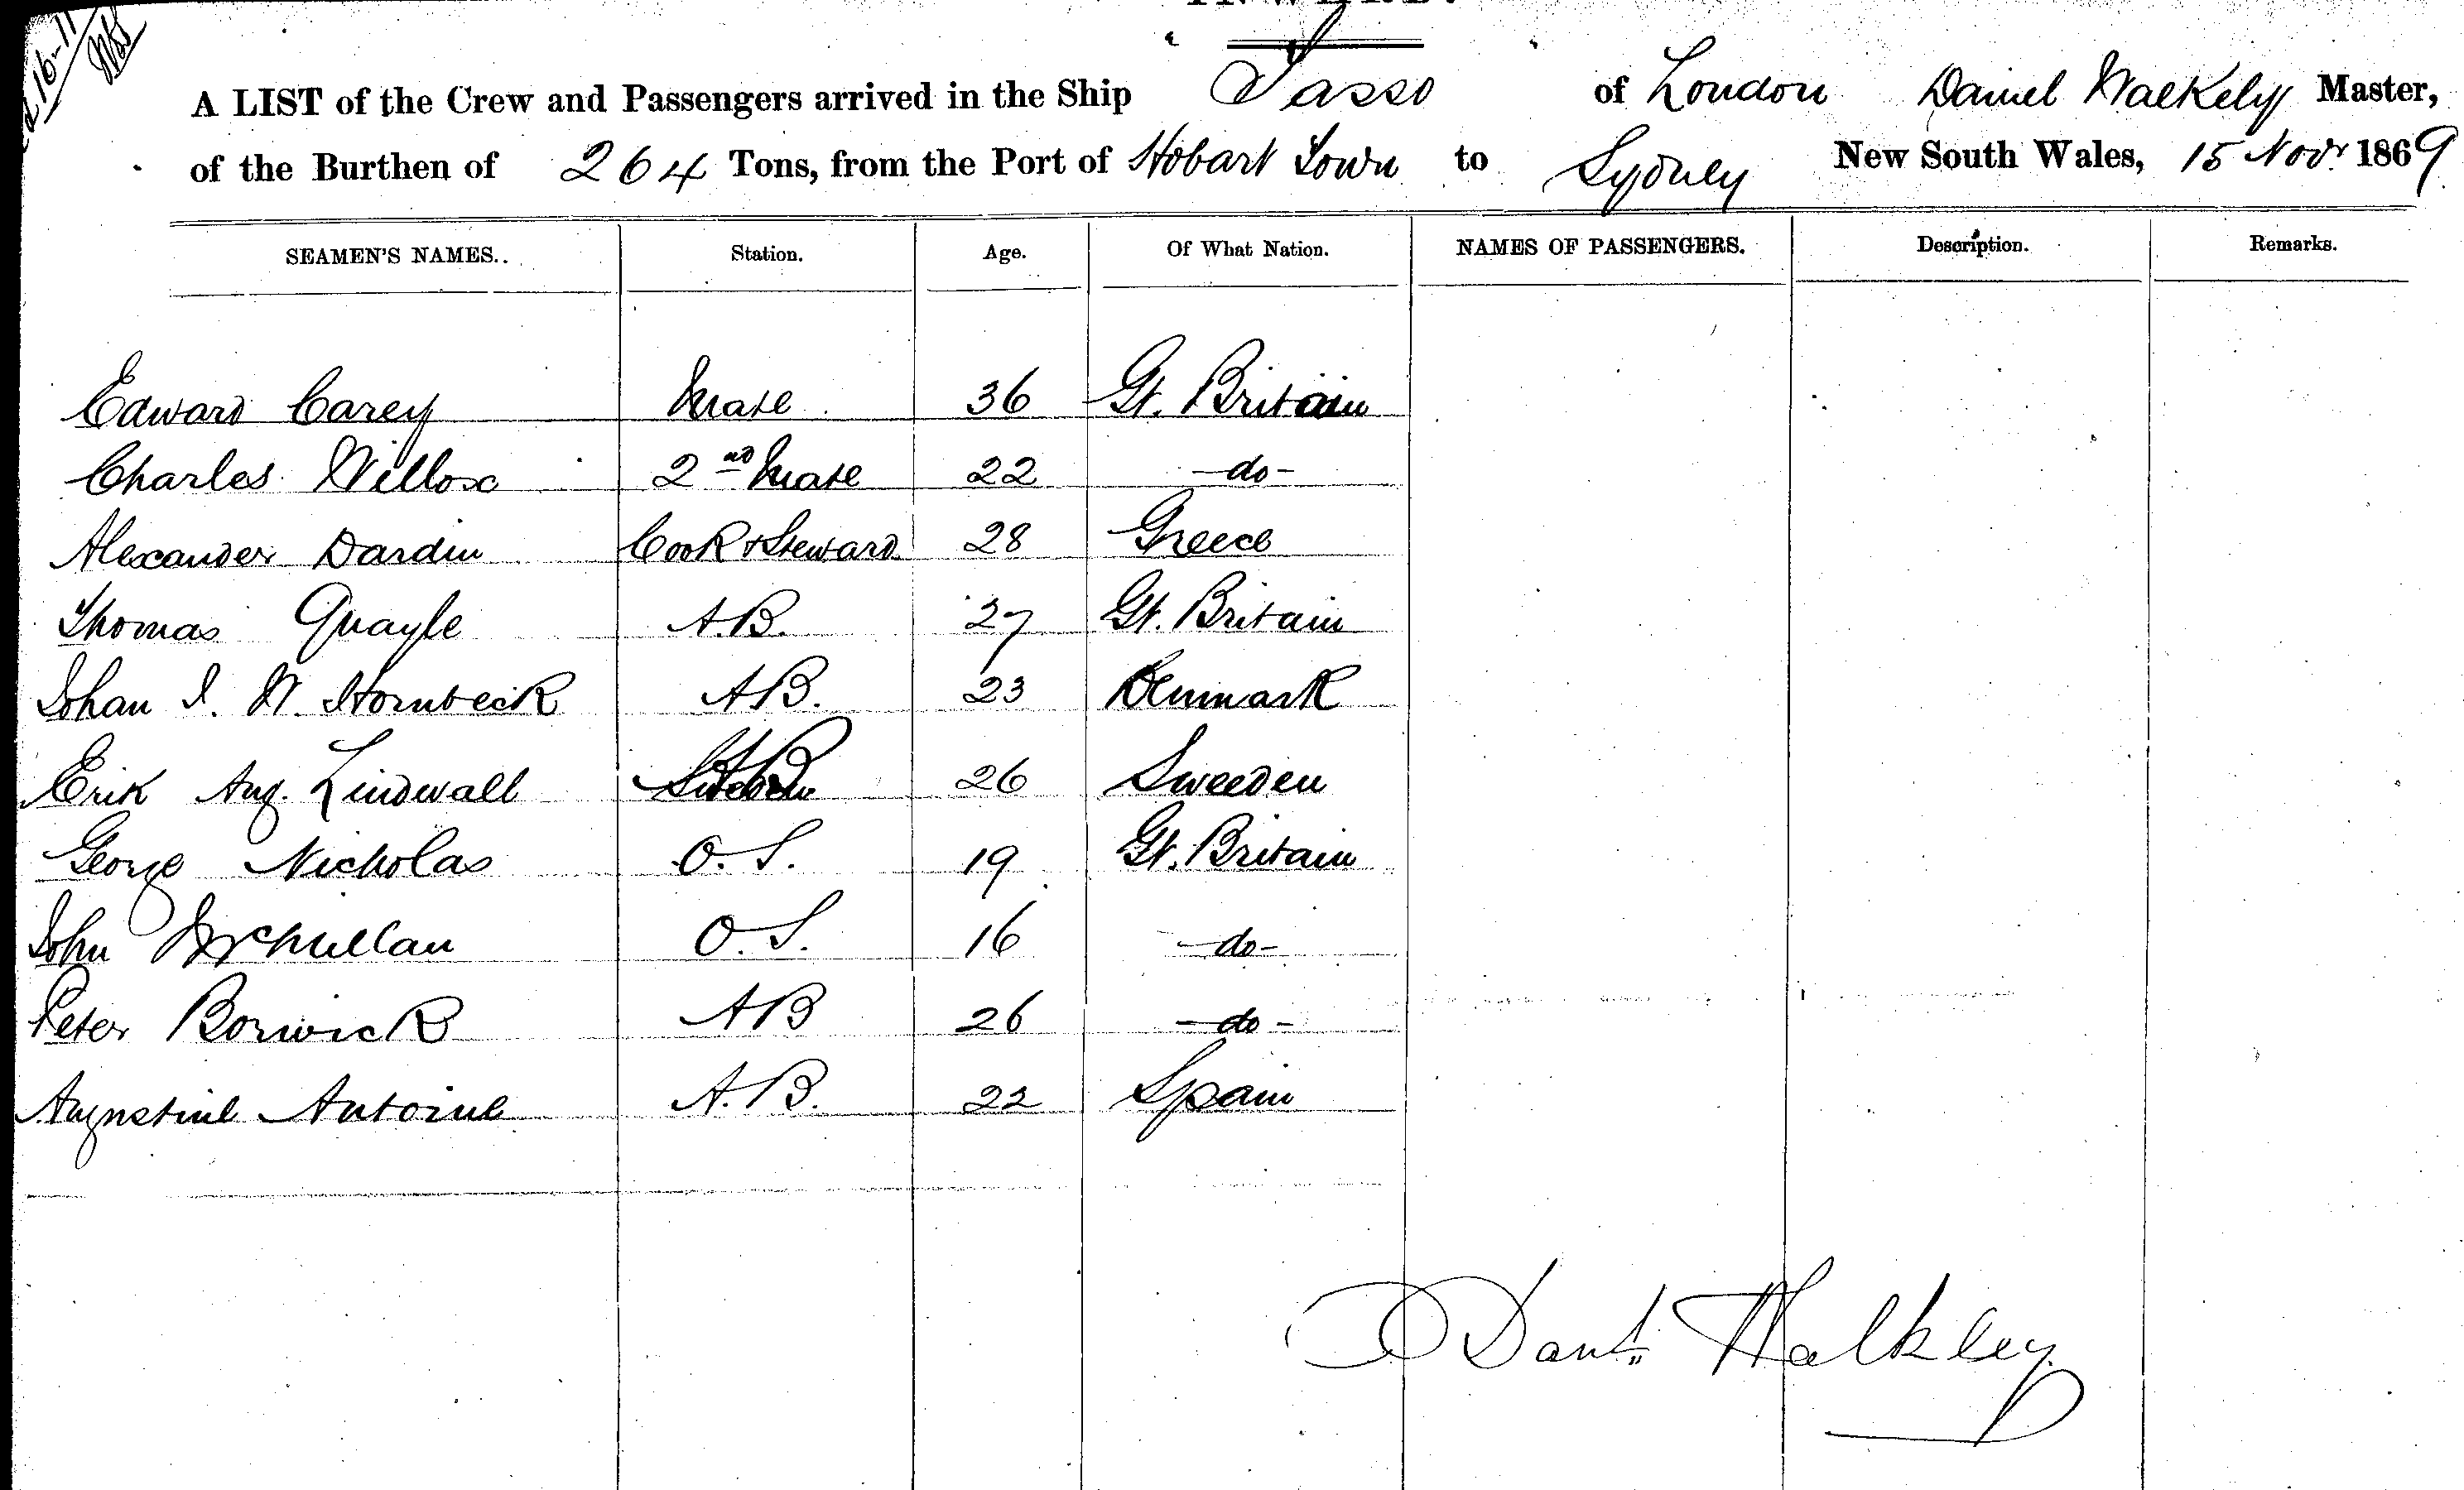 A LIST of the Crew and Passengers arrived in the Ship Tasso of London Daniel Walkely Master,
of the Burthen of 264 Tons, from the Port of Hobart Town to Sydney New South Wales, 15 Novr. 1869
SEAMEN'S NAMES. Station. Age. Of What Nation. NAMES OF PASSENGERS. Description. Remarks.
Edward Carey Mate 36 Gt. Britain
Charles Willox 2nd Mate 22 -do-
Alexander Dardin Cook & Steward 28 Greece
Thomas Quayle A.B. 27 Gt. Britain
Johan I. W. Hornbeck AB. 23 Denmark
Erik Aug. Lindwall AB 26 Sweeden
George Nicholas O.S. 19 Gt. Britain
John McMullan O.S. 16 -do-
Peter Borwick AB 26 -do-
Augustine Antoine A.B. 22 Spain
Danl. Walkley